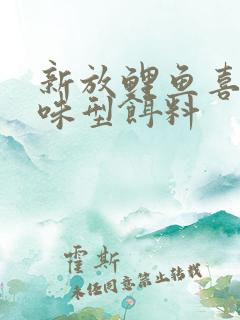 新放鲤鱼喜
味型饵料
霍斯
未经同意禁止转载